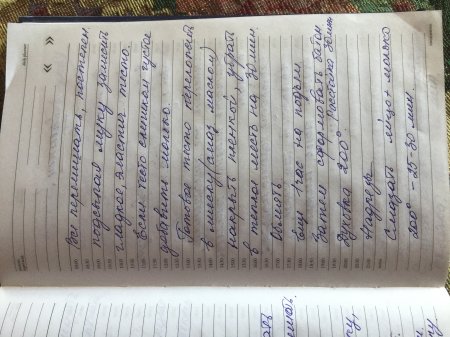 Всё перемешать, постепен
подсыпая муку замесить
гладкое, эластич тесто.
Если тесто слишком густое
добавить молоко.
Готовое тесто переложить
в миску (смаз маслом)
накрыть пленкой, убрать
в теплое место на 30 мин
Обмять
Ещё 1 час на подъём
Затем сформовать батон
Духовка 200° Расстойка 30мин
Надрез
Смазать яйцо + молоко
200° - 25-30 мин.